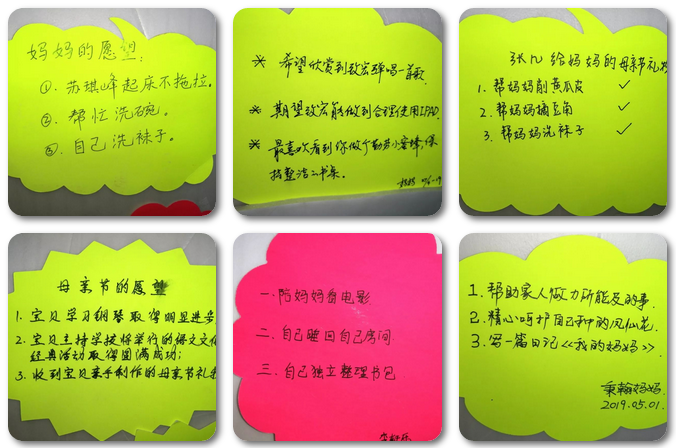 妈妈的愿望:
①.苏琪峰起床不拖拉。
②.帮忙洗碗。
③.自己洗袜子。
* 希望欣赏到致宏弹唱一首歌.
* 期望致宏能做到合理使用IPAD.
* 最喜欢看到你做个勤劳小蜜蜂,保
持整洁的书桌。
妈妈
给妈妈的母亲节礼物
1.帮妈妈削黄瓜皮 ✓
2.帮妈妈摘豆角 ✓
3.帮妈妈洗袜子 ✓
母亲节的愿望
1.宝贝学习钢琴取得明显进步
2.宝贝主持学校将举行的语文文化
经典活动取得圆满成功;
3.收到宝贝亲手制作的母亲节礼物
一.陪妈妈看电影
二.自己睡回自己房间
三.自己独立整理书包
1.帮助家人做力所能及的事.
2.精心呵护自己种的凤仙花.
3.写一篇日记《我的妈妈》.
秉翰妈妈
2019.05.01.